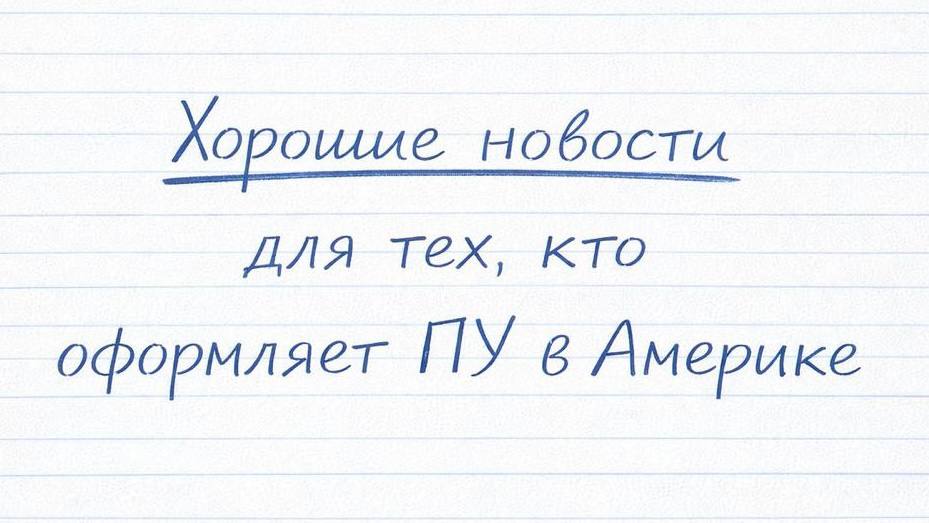 Хорошие новости
для тех, кто
оформляет ПУ в Америке